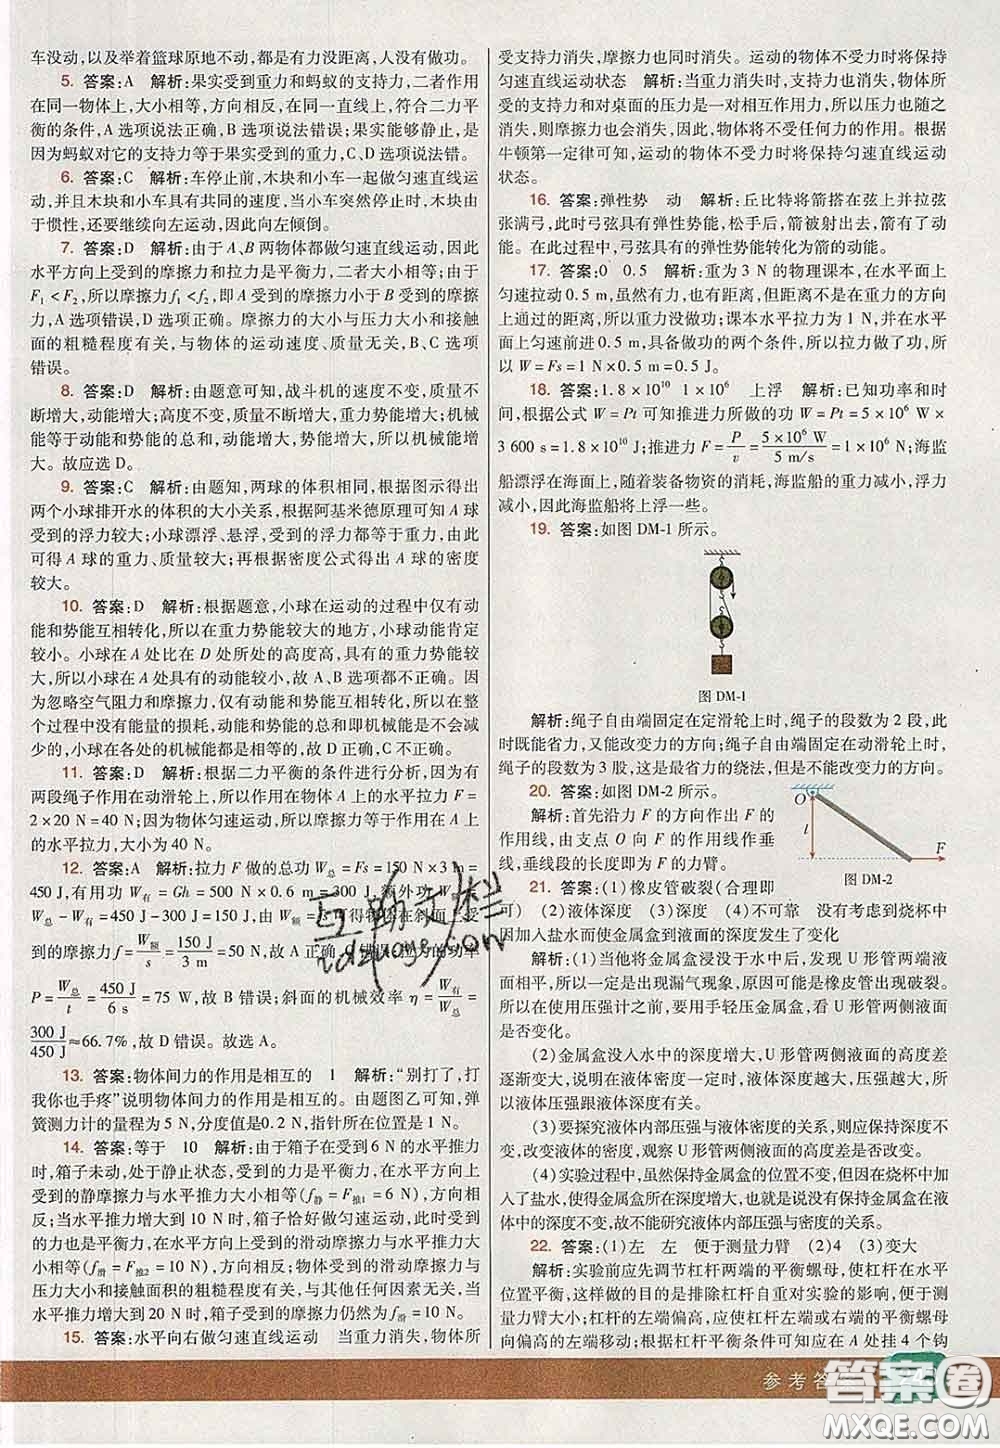 车没动,以及举着篮球原地不动,都是有力没距离,人没有做功。
5. 答案:A 解析:果实受到重力和蚂蚁的支持力,二者作用
在同一物体上,大小相等,方向相反,在同一直线上,符合二力平
衡的条件,A选项说法正确,B选项说法错误;果实能够静止,是
因为蚂蚁对它的支持力等于果实受到的重力,C、D选项说法错。
6. 答案:C 解析:车停止前,木块和小车一起做匀速直线运
动,并且木块和小车具有共同的速度,当小车突然停止时,木块由
于惯性,还要继续向左运动,因此向左倾倒。
7. 答案:D 解析:由于A、B两物体都做匀速直线运动,因此
水平方向上受到的摩擦力和拉力是平衡力,二者大小相等;由于
F₁<F₂,所以摩擦力f₁<f₂,即A受到的摩擦力小于B受到的摩
擦力,A选项错误,D选项正确。摩擦力的大小与压力大小和接触
面的粗糙程度有关,与物体的运动速度、质量无关,B、C选项
错误。
8. 答案:D 解析:由题意可知,战斗机的速度不变,质量不
断增大,动能增大;高度不变,质量不断增大,重力势能增大;机械
能等于动能和势能的总和,动能增大,势能增大,所以机械能增
大。故应选D。
9. 答案:C 解析:由题知,两球的体积相同,根据图示得出
两个小球排开水的体积的大小关系,根据阿基米德原理可知A球
受到的浮力较大;小球漂浮、悬浮,受到的浮力都等于重力,由此
可得A球的重力较大;再根据密度公式得出A球的密度
较大。
10. 答案:D 解析:根据题意,小球在运动的过程中仅有动
能和势能互相转化,所以在重力势能较大的地方,小球动能肯定
较小。小球在A处比在D处所处的高度高,具有的重力势能较大,
所以小球在A处具有的动能较小,故A、B选项不正确。
因为忽略空气阻力和摩擦力,仅有动能和势能互相转化,所以在
整个过程中没有能量的损耗,动能和势能的总和即机械能是不会减
少的,小球在各处的机械能都是相等的,故D正确,C错误。
11. 答案:D 解析:根据二力平衡的条件进行分析,因为有
两段绳子作用在动滑轮上,所以作用在物体A上的水平拉力F=
2×20 N=40 N;因为物体匀速运动,所以作用在物体A上
的水平拉力,大小为40 N。
12. 答案:A 解析:拉力F做的总功W总=Fs=150 N×3 m=
450 J,有用功W有=Gh=500 N×0.6 m=300 J,额外功W额=
W总-W有=450 J-300 J=150 J,由W额=fs可得物体在斜面上受
到的摩擦力f=W额/s=150 J/3 m=50 N,故A正确,C错误;拉力的功率
P=W总/t=450 J/6 s=75 W,故B错误;斜面的机械效率η=W有/W总=
300 J/450 J≈66.7%,故D错误。故选A。
13. 答案:物体间力的作用是相互的 1 解析:“别打了,打
我你也手疼”说明物体间力的作用是相互的。由题图乙可知,弹
簧测力计的量程为5 N,分度值是0.2 N,指针所在的位置是1 N。
14. 答案:等于 10 解析:由于箱子在受到6 N的水平推力
时,箱子未动,处于静止状态,受到的力是平衡力,在水平方向上受
到的静摩擦力与水平推力大小相等(f静=F推1=6 N),方向相
反;当水平推力增大到10 N时,箱子恰好做匀速直线运动,此时受到
的也是平衡力,在水平方向上受到的滑动摩擦力与水平推力大小相等
(f滑=F推2=10 N),方向相反;由于滑动摩擦力的大小与
压力大小和接触面积的粗糙程度有关,与其他任何因素无关,当水平
推力增大到20 N时,箱子受到的摩擦力仍然为f滑=10 N。
15. 答案:水平向右做匀速直线运动 当重力消失,物体所
受支持力消失,摩擦力也同时消失。运动的物体不受力时将保持
匀速直线运动状态 解析:当重力消失时,支持力也消失,因物体
所受的支持力和对桌面的压力是一对相互作用力,所以压力也随之
消失,则摩擦力也会消失,因此,物体将不受任何力的作用。根据
牛顿第一定律可知,运动的物体不受力时将保持匀速直线运动
状态。
16. 答案:弹性势 动 解析:丘比特将箭搭在弦上并拉弦
张满弓,此时弓弦具有弹性势能,松手后,箭被射出去,箭有了动
能。在此过程中,弓弦具有的弹性势能转化为箭的动能。
17. 答案:0 0.5 解析:重为3 N的物理课本,在水平面上
匀速拉动0.5 m,虽然有力,也有距离,但距离不是在重力的方向
上通过的距离,所以重力没做功;课本水平拉力为1 N,并在水平面
上匀速前进0.5 m,具备做功的两个条件,所以拉力做了功,所
以W=Fs=1 N×0.5 m=0.5 J。
18. 答案:1.8×10¹⁰ 1×10⁶ 上浮 解析:已知功率和时
间,根据公式W=Pt可知推进力所做的功W=Pt=5×10⁶ W×
3 600 s=1.8×10¹⁰ J;推进力F=P/v=5×10⁶ W/5 m/s=1×10⁶ N;海监
船漂浮在海面上,随着装备物资的消耗,海监船的重力减小,浮力
减小,因此海监船将上浮一些。
19. 答案:如图DM-1所示。
图DM-1
解析:绳子自由端固定在定滑轮上时,绳子的段数为2段,此
时既能省力,又能改变力的方向;绳子自由端固定在动滑轮上时,
绳子的段数为3股,这是最省力的绕法,但是不能改变力的方向。
20. 答案:如图DM-2所示。
解析:首先沿力F的方向作出F的
作用线,由支点O向F的作用线作垂
线,垂线段的长度即为F的力臂。
O
l
F
图DM-2
21. 答案:(1)橡皮管破裂(合理即
可) (2)液体深度 (3)深度 (4)不可靠 没有考虑到烧杯中
因加入盐水而使金属盒到液面的深度发生了变化
解析:(1)当他将金属盒浸没于水中后,发现U形管两端液
面相平,所以一定是出现漏气现象,原因可能是橡皮管出现破裂。
所以在使用压强计之前,要用手轻压金属盒,看U形管两侧液面
是否变化。
(2)金属盒没入水中的深度增大,U形管两侧液面的高度差
逐渐变大,说明在液体密度一定时,液体深度越大,压强越大,所以
液体压强跟液体深度有关。
(3)要探究液体内部压强与液体密度的关系,则应保持深度不
变,改变液体的密度,观察U形管两侧液面的高度是否改变。
(4)实验过程中,虽然保持金属盒的位置不变,但因在烧杯中加入
了盐水,使得金属盒所在深度增大,也就是说没有保持金属盒在液
体中的深度不变,故不能研究液体内部压强与密度的关系。
22. 答案:(1)左 左 便于测量力臂 (2)4 (3)变大
解析:实验前应先调节杠杆两端的平衡螺母,使杠杆在水平
位置平衡,这样做的目的是排除杠杆自重对实验的影响,且便于测
量力臂大小;杠杆的左端偏高,应使杠杆左端或右端的平衡螺母
向偏高的左端移动;根据杠杆平衡条件可知应在A处挂4个钩
参考答案
答案圈
MXQE.COM